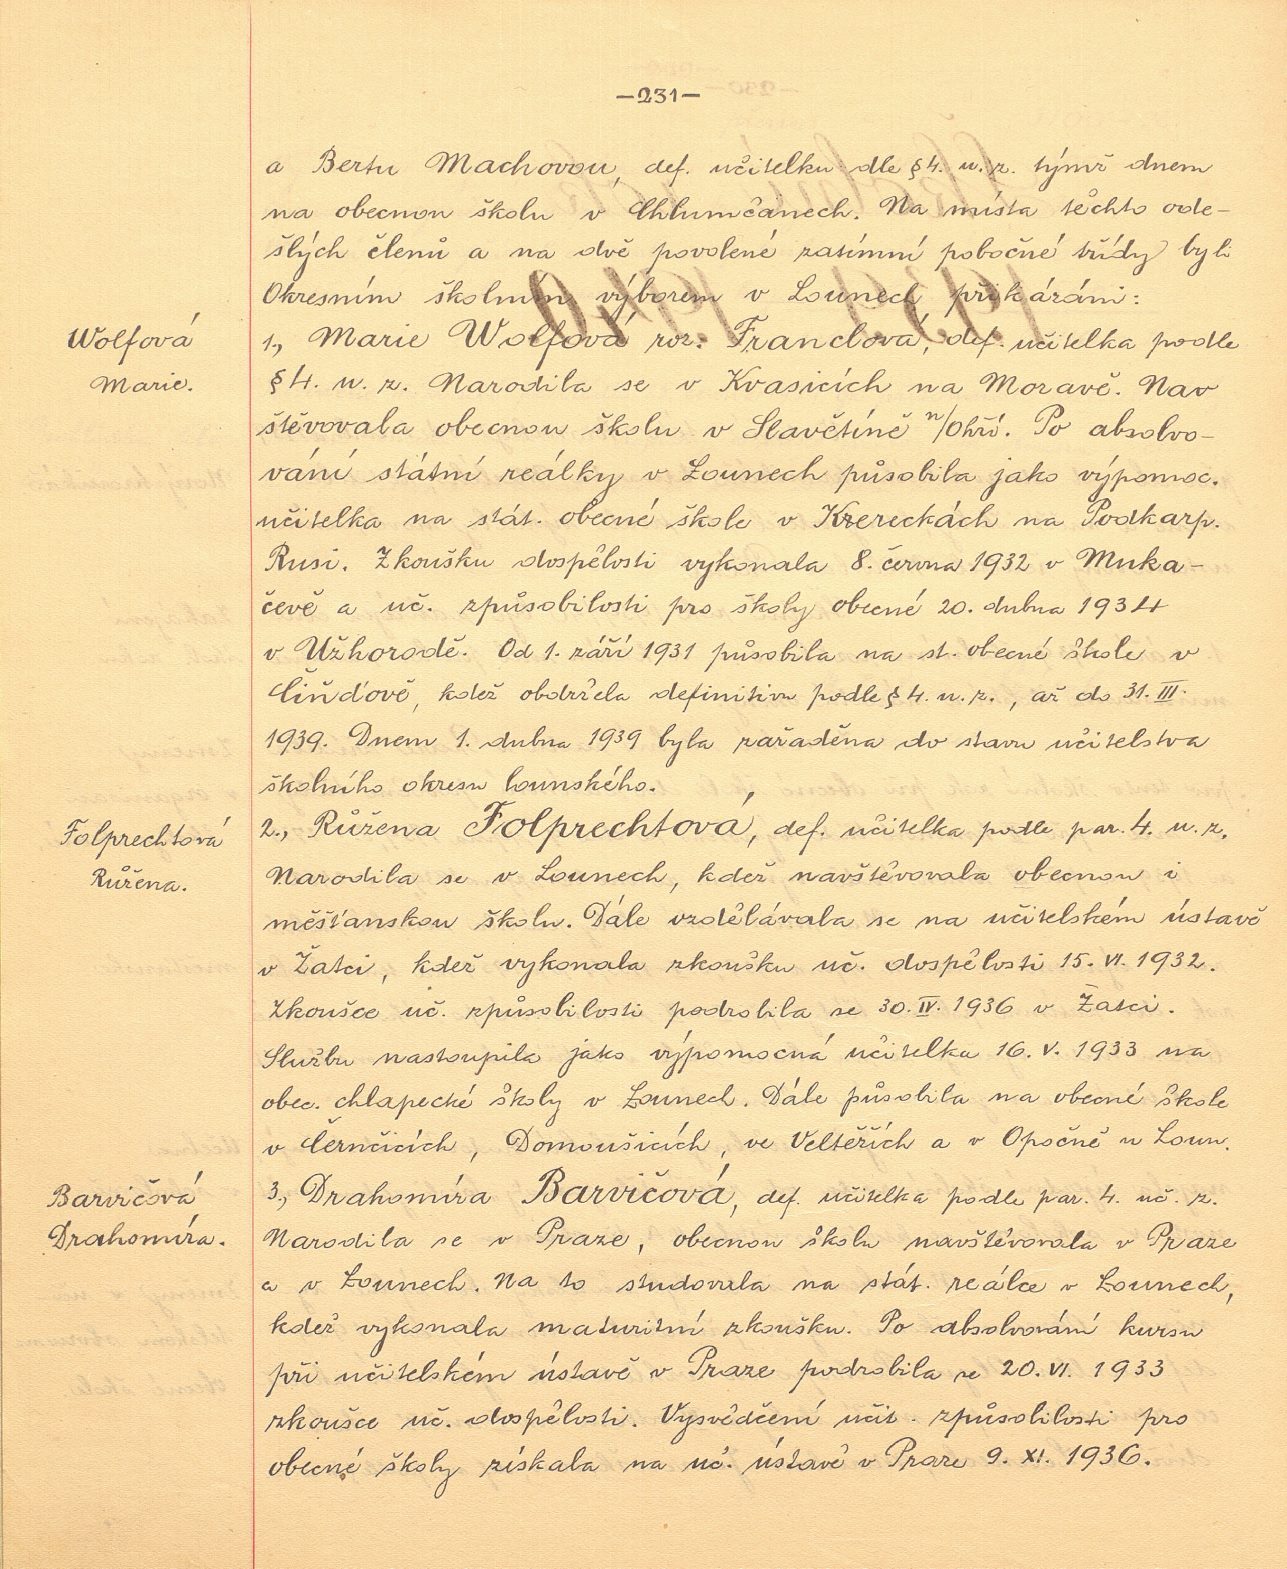 —231—
a Bertu Machovou, def. učitelku dle §4. u. z. týmž dnem
na obecnou školu v Chlumčanech. Na místa těchto ode-
šlých členů a na dvě povolené zatímní pobočné třídy byli
Okresním školním výborem v Lounech přikázáni:
Wolfová
Marie.
1., Marie Wolfová roz. Franclová, def. učitelka podle
§4. u. z. Narodila se v Kvasicích na Moravě. Nav
štěvovala obecnou školu v Slavětíně n/Ohří. Po absolvo-
vání státní reálky v Lounech působila jako výpomoc.
učitelka na stát. obecné škole v Kzereckách na Podkarp.
Rusi. Zkoušku dospělosti vykonala 8. června 1932 v Muka-
čevě a uč. způsobilosti pro školy obecné 20. dubna 1934
v Užhorodě. Od 1. září 1931 působila na st. obecné škole v
Čiňďově, kdež obdržela definitivu podle § 4. u. z., až do 31. III.
1939. Dnem 1. dubna 1939 byla zařaděna do stavu učitelstva
školního okresu lounského.
Folprechtová
Růžena.
2., Růžena Folprechtová, def. učitelka podle par. 4. u. z.
Narodila se v Lounech, kdež navštěvovala obecnou i
měšťanskou školu. Dále vzdělávala se na učitelském ústavě
v Žatci, kdež vykonala zkoušku uč. dospělosti 15. VI. 1932.
Zkoušce uč. způsobilosti podrobila se 30. IV. 1936 v Žatci.
Službu nastoupila jako výpomocná učitelka 16. V. 1933 na
obec. chlapecké školy v Lounech. Dále působila na obecné škole
v Černčicích, Domoušicích, ve Veltěžích a v Opočně u Loun.
Barvičová
Drahomíra.
3., Drahomíra Barvičová, def. učitelka podle par. 4. uč. z.
Narodila se v Praze, obecnou školu navštěvovala v Praze
a v Lounech. Na to studovala na stát. reálce v Lounech,
kdež vykonala maturitní zkoušku. Po absolvování kursu
při učitelském ústavě v Praze podrobila se 20. VI. 1933
zkoušce uč. dospělosti. Vysvědčení učit. způsobilosti pro
obecné školy získala na uč. ústavě v Praze 9. XI. 1936.